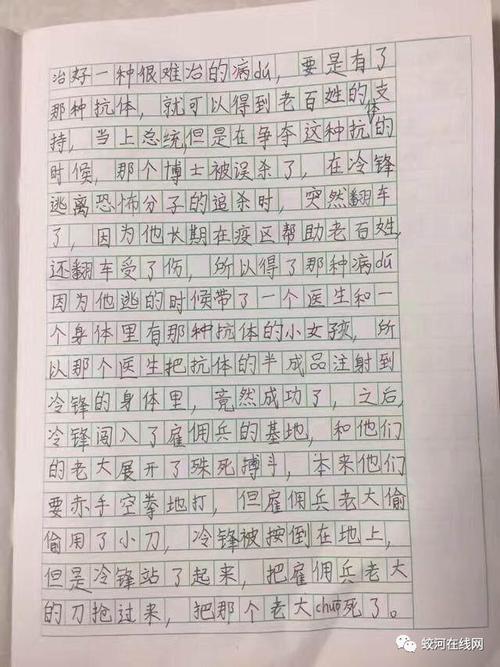 治好一种很难治的病dú，要是有了
那种抗体，就可以得到老百姓的支
持，当上总统，但是在争夺这种抗体的
时候，那个博士被误杀了，在冷锋
逃离恐怖分子的追杀时，突然翻车
了，因为他长期在疫区帮助老百姓，
还翻车受了伤，所以得了那种病dú
因为他逃的时候带了一个医生和一
个身体里有那种抗体的小女孩，所
以那个医生把抗体的半成品注射到
冷锋的身体里，竟然成功了，之后，
冷锋闯入了雇佣兵的基地，和他们
的老大展开了殊死搏斗，本来他们
要赤手空拳地打，但雇佣兵老大偷
偷用了小刀，冷锋被按倒在地上，
但是冷锋站了起来，把雇佣兵老大
的刀抢过来，把那个老大chuō死了。
蛟河在线网